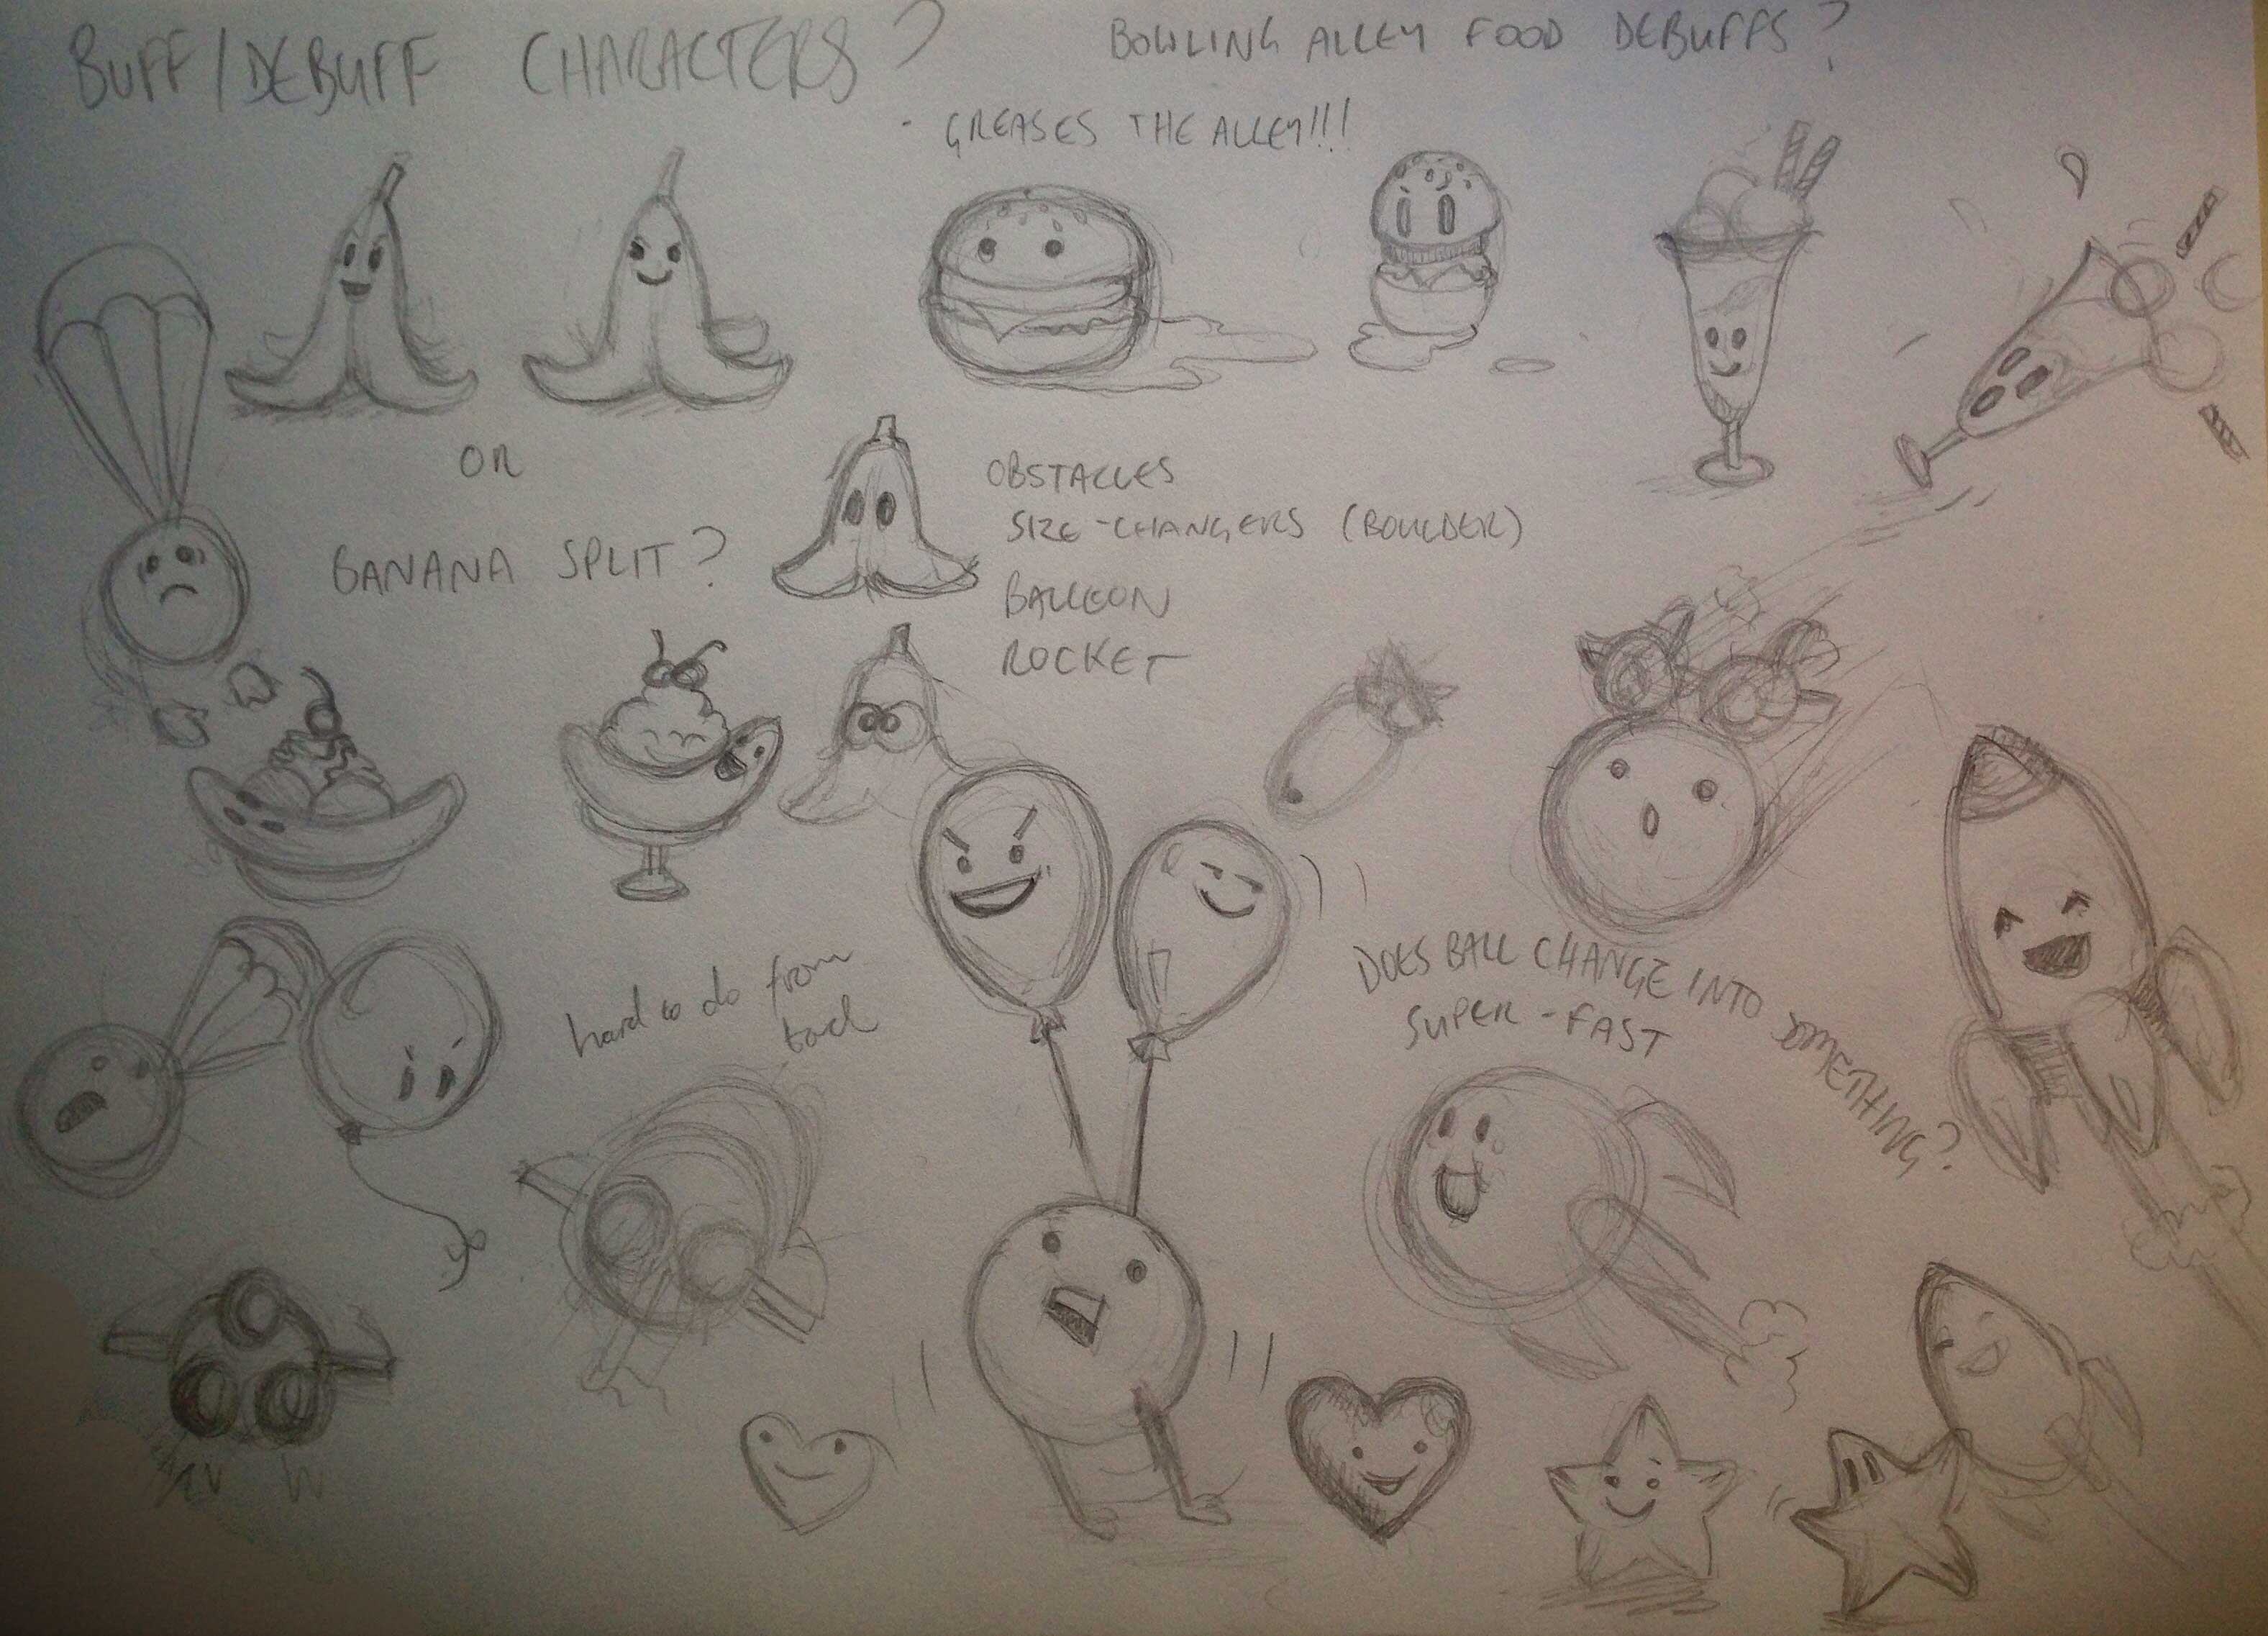 BUFF/DEBUFF CHARACTERS?
BOWLING ALLEY FOOD DEBUFFS?
- GREASES THE ALLEY!!!
OR
BANANA SPLIT?
OBSTACLES
SIZE-CHANGERS (BOULDER)
BALLOON
ROCKET
hard to do from
back
DOES BALL CHANGE INTO SOMETHING?
SUPER-FAST